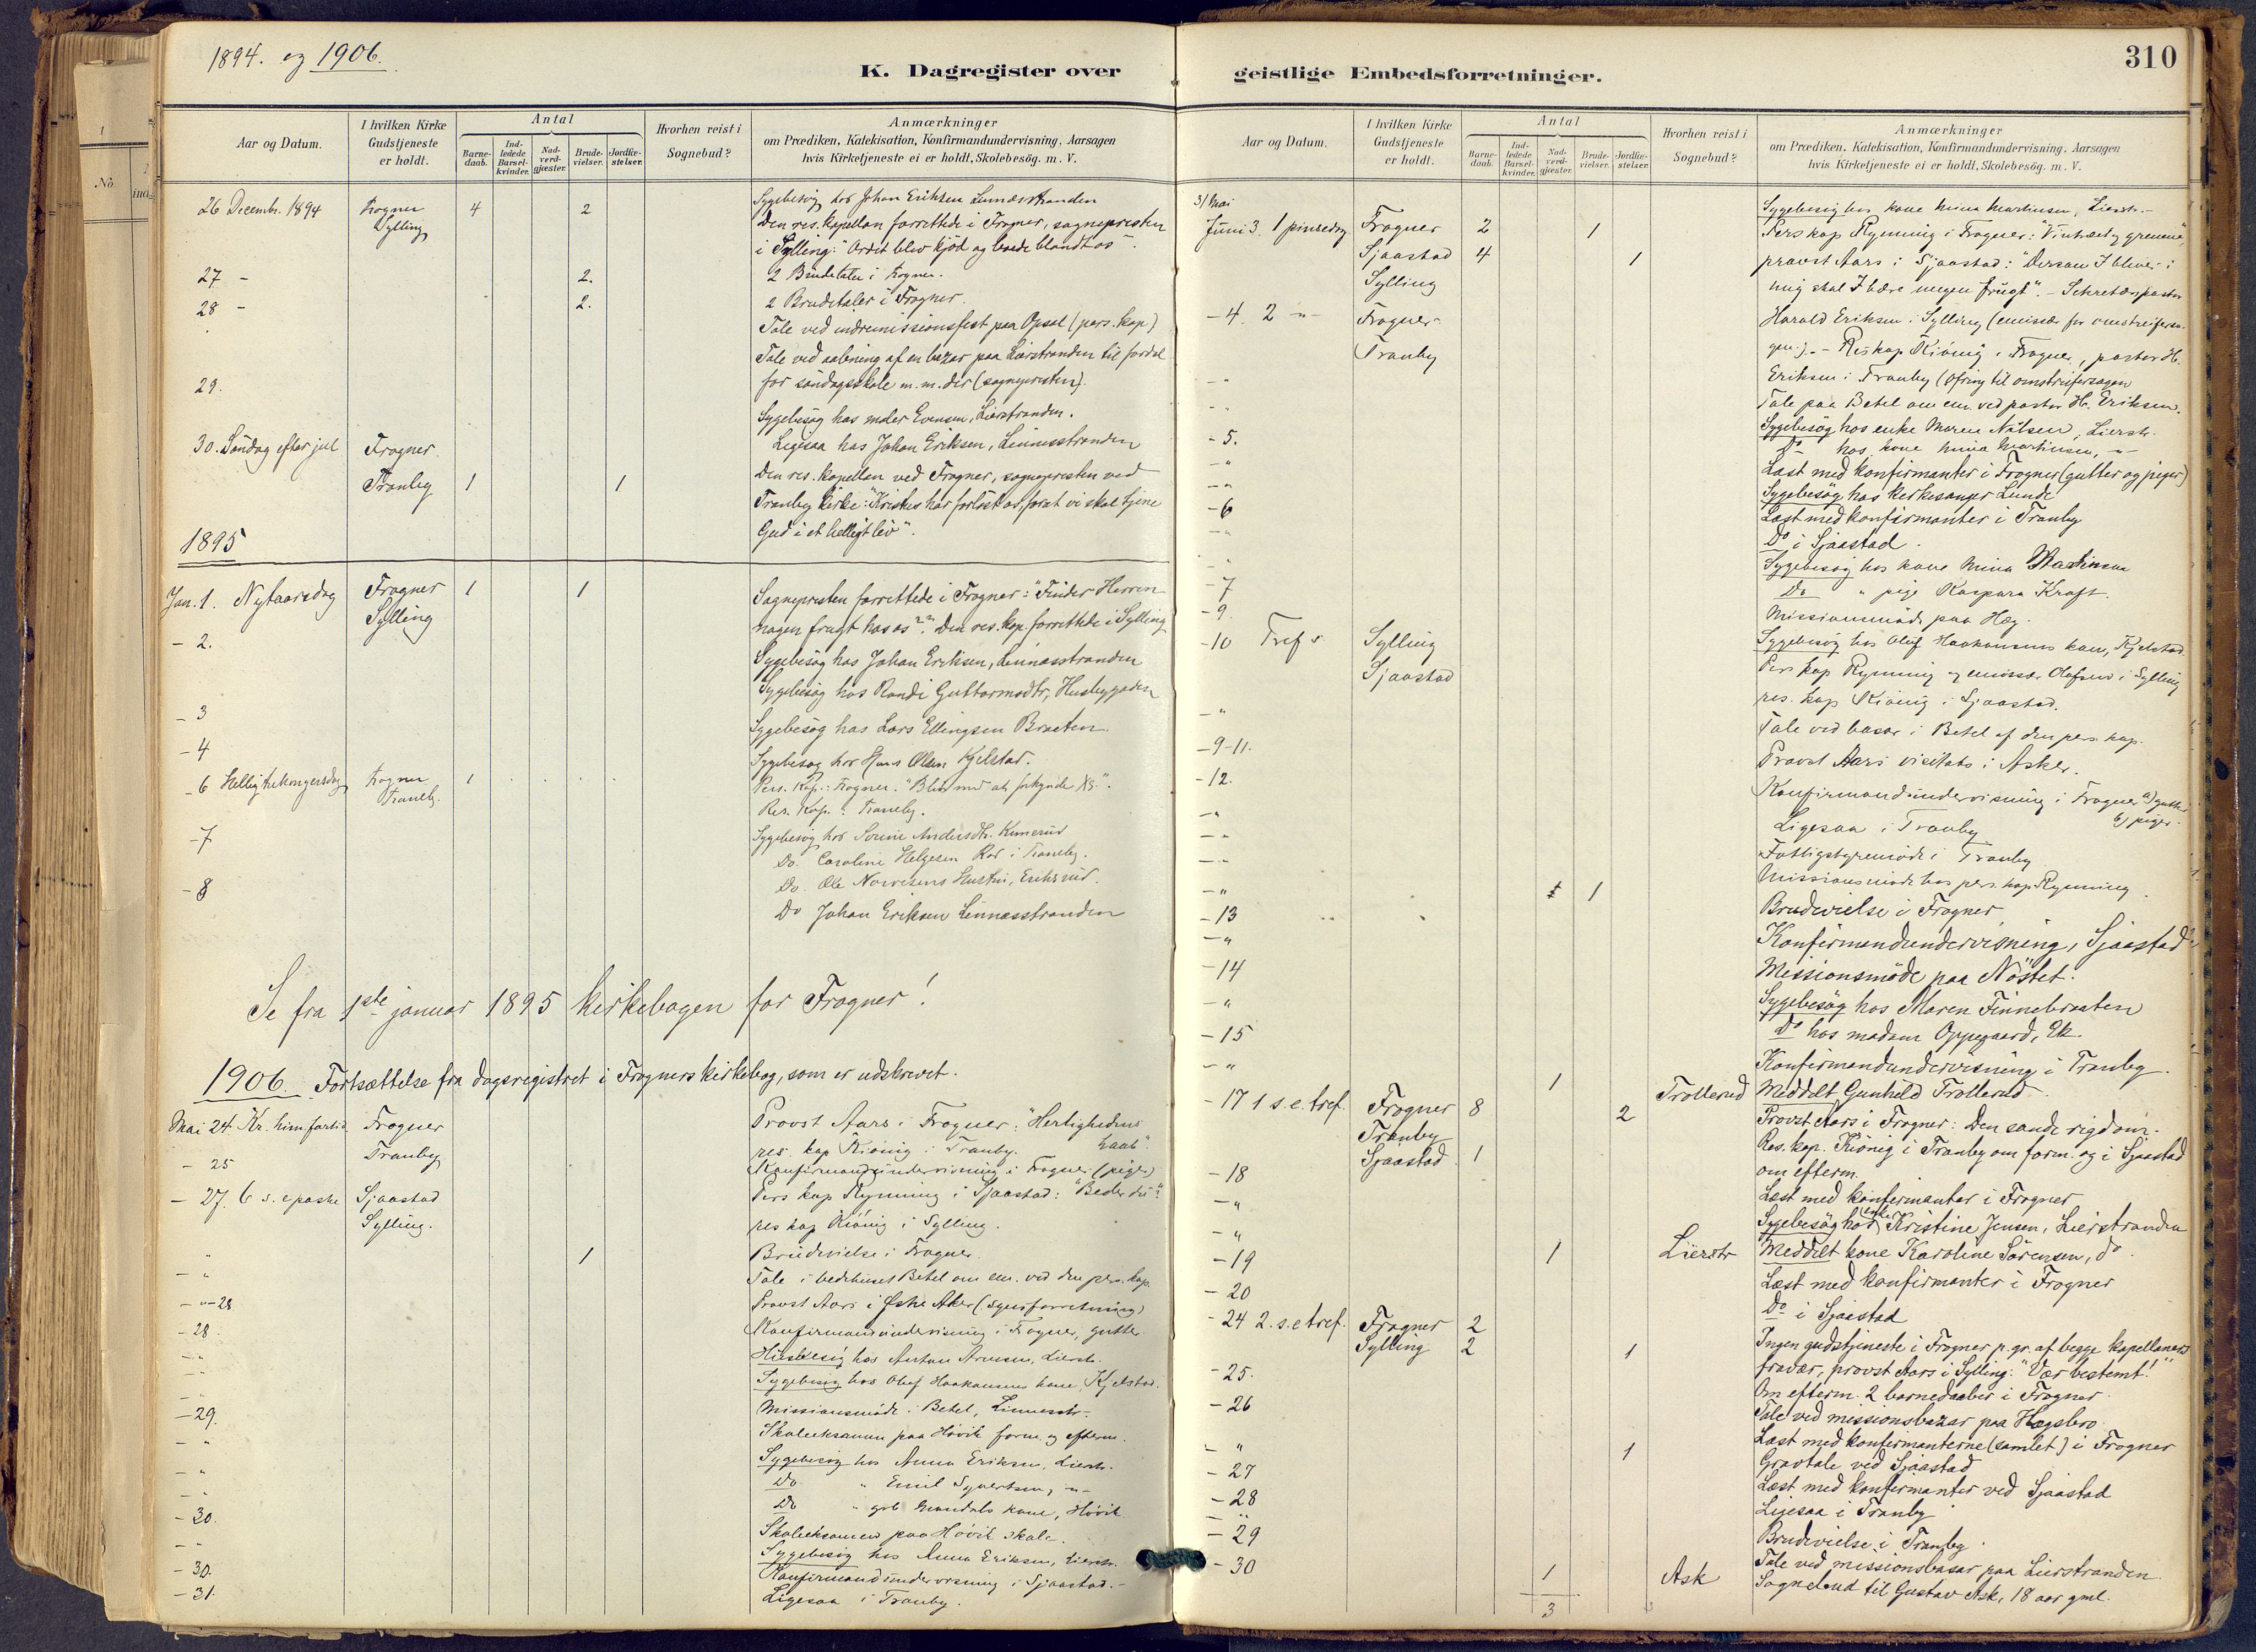 1894. og 1906.
K. Dagregister over
Aar og Datum.
I hvilken Kirke Gudstjeneste er holdt.
Antal
Barne-daab.
Ind-ledede Barsel-kvinder.
Nad-verd-gjæster.
Brude-vielser.
Jordfæ-stelser.
Hvorhen reist i Sognebud?
Anmærkninger
om Prædiken, Katekisation, Konfirmandundervisning, Aarsagen
hvis Kirketjeneste ei er holdt, Skolebesög. m. V.
26 Decembr. 1894 Frogner 4 2 Sygebesög hos Johan Eriksen Linnesstranden
Sylling Den res. kapellan forrettede i Frogner, sognepresten
i Sylling: "Ordet blev kjöd og boede blandt os".
27 - 2. 2 Brudetaler i Frogner.
28 - 2. 2 Brudetaler i Frogner.
Tale ved indremissionsfest paa Opsal (pers. kap)
Tale ved aabning af en bazar paa Lierstranden til fordel
29. for söndagsskole m.m. der (sognepresten).
Sygebesög hos maler Evensen, Lierstranden.
30. Söndag efter jul Frogner Ligesaa hos Johan Eriksen, Linnesstranden
Den res. kapellan ved Frogner, sognepresten ved
Tranby 1 1 Tranby kirke: "Kristus har forlöst os, forat vi skal tjene
Gud i et helligt liv".
1895
Jan. 1. Nytaarsdag Frogner 1 1 Sognepresten forrettede i Frogner: "Finder Herren
Sylling nogen frugt hos os?" Den res. kap. forrettede i Sylling
- 2. Sygebesög hos Johan Eriksen, Linnesstranden
Sygebesög hos Randi Guttormsdtr, Husebygaden
- 3 Sygebesög hos Lars Ellingsen Braaten
- 4 Sygebesög hos Hans Olsen Kjelstad.
- 6 Hellig trekongersdag Frogner 1 Pers. Kap.: Frogner.
Tranby. Res. Kap. i Tranby.
- 7 Sygebesög hos Andersdtr.
Do. Caroline Helgesen i Tranby.
- 8 Do. Ole Hustru,
Do Johan Eriksen Linnesstranden
Se fra 1ste januar 1895 kirkebogen for Frogner!
1906. Fortsættelse fra dagsregistret i Frogners kirkebog, som er udskrevet.
Mai 24 Kr. himfartsd. Frogner Provst Aars i Frogner: "Herlighedens
Tranby res. kap. Kiönig i Tranby. haab"
- 25 Konfirmandundervisning i Frogner (piger)
- 27. 6 s. e paaske Sjaastad Pers kap Rynning i Sjaastad: "Beder du?"
Sylling. res kap Kiönig i Sylling.
- " 1 Brudevielse i Frogner.
- " Tale i bedehuset Betel om em. ved den pers. kap.
- " - 28 Provst Aars i Östre Aker (synsforretning)
- 28. Konfirmandundervisning i Frogner, gutter
Husbesög hos Anton Arnesen, Lierstr.
Sygebesög hos Oluf Haakonsens kone, Kjelstad.
- 29. Missionsmöde i Betel, Linnesstr.
- " Skoleeksamen paa Hövik form. og efterm.
- " Sygebesög hos Anna Eriksen, Lierstr.
Do " Emil Syvertsen, -"-
Do " kone, Hövik
- 30. Skoleeksamen paa Hövik skole.
- " Sygebesög hos Anna Eriksen, Lierstr.
- 30. Konfirmandundervisning i Sjaastad.-
- 31. Ligesaa i Tranby.
310
geistlige Embedsforretninger.
Aar og Datum.
I hvilken Kirke Gudstjeneste er holdt.
Antal
Barne-daab.
Ind-ledede Barsel-kvinder.
Nad-verd-gjæster.
Brude-vielser.
Jordfæ-stelser.
Hvorhen reist i Sognebud?
Anmærkninger
om Prædiken, Katekisation, Konfirmandundervisning, Aarsagen
hvis Kirketjeneste ei er holdt, Skolebesög. m. V.
31 Mai Sygebesög hos kone Mina Martinsen, Lierstr.-
Juni 3. 1 pinsedag Frogner 2 1 Pers kap Rynning i Frogner: "Vintræet og grenene",
Sjaastad 4 1 provst Aars i Sjaastad: "Dersom I bliver i
Sylling mig skal I bære megen frugt". - Sekretær pastor
- 4. 2 -"- Frogner Harald Eriksen i Sylling (emissær for omstreifersa-
Tranby gen). - Res kap Kiönig i Frogner, pastor H.
- " Eriksen i Tranby (ofring til omstreifersagen
- " Tale paa Betel om em. ved pastor H. Eriksen.
- 5. Sygebesög hos enke Maren Nilsen, Lierstr.
Do hos kone Mina Martinsen, -"-
- " Læst med konfirmanter i Frogner (gutter og piger)
- " Sygebesög hos kirkesanger Lunde
- 6 Læst med konfirmanter i Tranby
- " Do i Sjaastad.
- " Sygebesög hos kone Mina Martinsen
- 7 Do " pige Kaspara Kraft.
- 9. Missionsmöde paa Hæg.
- 10 Tref s. Sylling Sygebesög hos Oluf Haakonsens kone, Kjelstad.
Sjaastad Pers kap Rynning og emissær Olafsen i Sylling
res. kap Kiönig i Sjaastad.
- " Tale ved basar i Betel af den pers. kap.
- 9-11. Provst Aars visitats i Asker.
- 12. Konfirmandundervisning i Frogner a) gutter
b) piger.
- " Ligesaa i Tranby
- " Fattigstyremöde i Tranby
- " Missionsmöde hos pers. kap. Rynning
- " 1 Brudevielse i Frogner
- 13 Konfirmandundervisning, Sjaastad
- " Missionsmöde paa Nöstet.
- 14 Sygebesög hos Maren Finnebraaten
- " Do hos madam Oppegaard, Ek
- 15 Konfirmandundervisning i Tranby.
- " 1 Trollerud Meddelt Gunhild Trollerud.
- 17 1 s.e. tref. Frogner 8 2 Provst Aars i Frogner: Den sande rigdom.
Tranby Res. kap. Kiönig i Tranby om form. og i Sjaastad
Sjaastad 1 om efterm.
- 18 Læst med konfirmanter i Frogner
- " Sygebesög hos (enke) Kristine Jensen, Lierstranden
- " 1 Lierstr Meddelt kone Karoline Sörensen, do.
- 19 Læst med konfirmanter i Frogner
- 20 Do i Sjaastad
- 24 2. s.e tref. Frogner 2 Ingen gudstjeneste i Frogner p. gr. af begge kapellaners
Sylling 2 1 fravær, provst Aars i Sylling: "Vær bestemt!"
Om efterm. 2 barnedaaber i Frogner
- 25. Tale ved missionsbazar paa Hægsbro
- 26 Læst med konfirmanterne (samlet) i Frogner
- " 1 Gravtale ved Sjaastad
- 27 Læst med konfirmanter ved Sjaastad
- 28 Ligesaa i Tranby
- 29 Brudevielse i Tranby
- 30 Tale ved missionsbasar paa Lierstranden
1 Ask Sognebud til Gustav Ask, 18 aar gml.
3